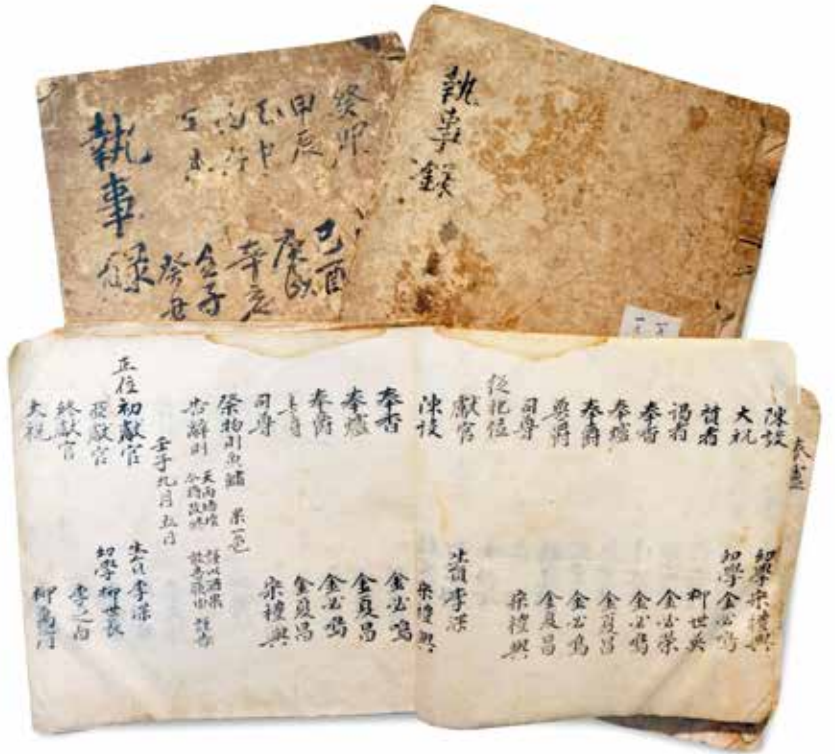 執事錄
癸卯
甲辰
己酉
庚戌
辛亥
壬子
癸丑
執事錄
陳設 幼學宋禮興
大祝 幼學金必鳴
贊者 柳世英
謁者 金必榮
奉香 金必鳴
奉爐 金夏昌
奉爵 金必鳴
奠爵 金夏昌
司尊 宋禮興
從祀位
獻官 生員李深
陳設 宋禮興
奉香 金必鳴
奉爐 金夏昌
奉爵 金必鳴
奠爵 金夏昌
司尊 宋禮興
祭物則魚鱐 果一色
告辭則 天雨墻壞 謹以酒果
今將改修 謹告
壬子九月五日
正位初獻官 生員李深
亞獻官 幼學柳世長
終獻官 李之白
大祝 柳